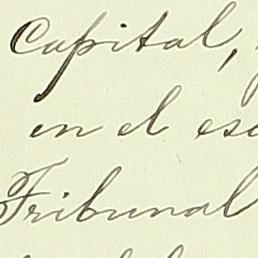 Capital,
en el esc
Tribunal